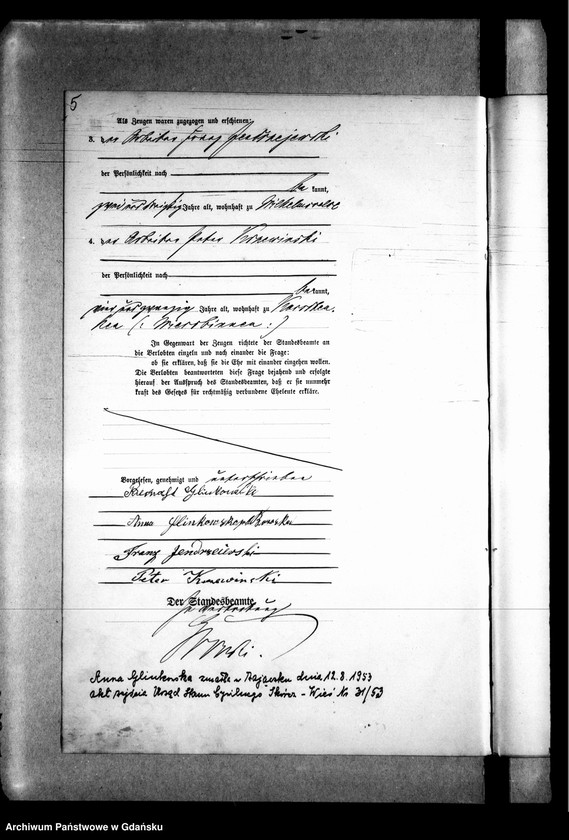 5
Als Zeugen waren zugezogen und erschienen:
3. der Arbeiter Franz Jendrzejewski
der Persönlichkeit nach
be kannt,
zweiunddreißig Jahre alt, wohnhaft zu Wilhelmswalde
4. der Arbeiter Peter
der Persönlichkeit nach
be kannt,
undzwanzig Jahre alt, wohnhaft zu
ken (: :)
In Gegenwart der Zeugen richtete der Standesbeamte an
die Verlobten einzeln und nach einander die Frage:
ob sie erklären, daß sie die Ehe mit einander eingehen wollen.
Die Verlobten beantworteten diese Frage bejahend und erfolgte
hierauf der Ausspruch des Standesbeamten, daß er sie nunmehr
kraft des Gesetzes für rechtmäßig verbundene Eheleute erkläre.
Vorgelesen, genehmigt und unterschrieben
Anna Glinkowska
Franz Jendrzeiewski
Peter
Der Standesbeamte.
In Vertretung
Anna Glinkowska zmarła w dnia 12.8.1953
akt zejścia Urząd Stanu Cywilnego Skórcz - Wieś Nr 31/53
Archiwum Państwowe w Gdańsku